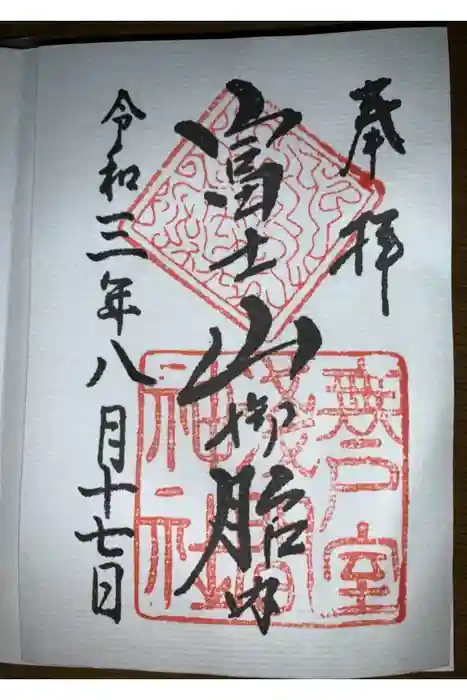 奉拝
富士山御胎内
無戸室
浅間
神社
令和三年八月十七日